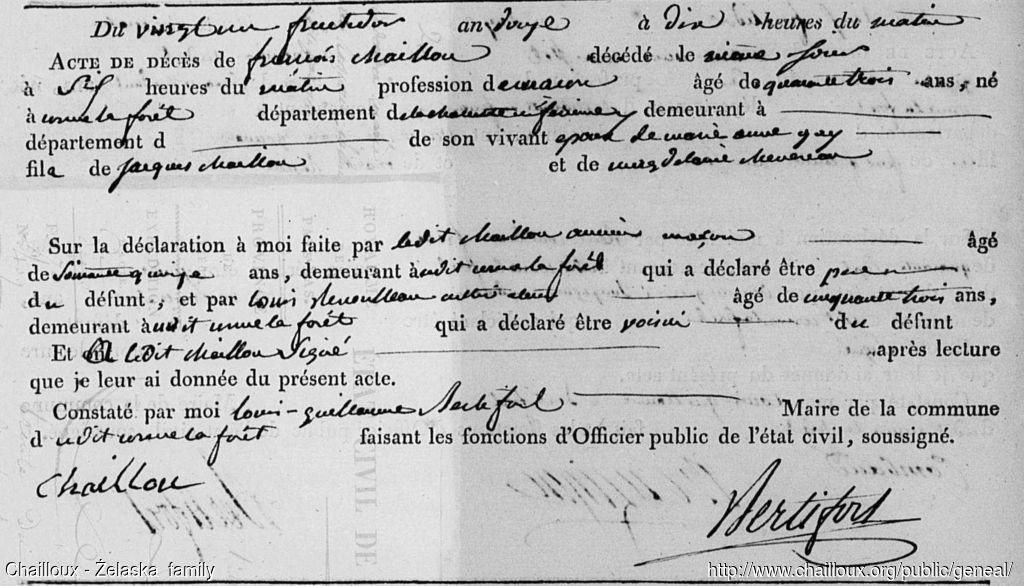 Du vingt un fructidor an douze à dix heures du matin
ACTE DE DÉCÈS de françois chaillou décédé le même jour
à six heures du matin profession de maçon âgé de quarante trois ans, né
à la forêt département de la charente inférieure demeurant à
département d de son vivant epoux de marie anne gey
fils de jacques chaillou et de magdelaine
Sur la déclaration à moi faite par ledit chaillou ancien maçon âgé
de soixante quinze ans, demeurant à udit la forêt qui a déclaré être pere
du défunt, et par louis cultivateur âgé de cinquante trois ans,
demeurant à udit la forêt qui a déclaré être voisin du défunt
Et ledit chaillou signé après lecture
que je leur ai donnée du présent acte.
Constaté par moi louis-guillaume Bertifort Maire de la commune
d udit la forêt faisant les fonctions d'Officier public de l'état civil, soussigné.
Chaillou
Bertifort
Chailloux - Želaska family http://www.chailloux.org/public/geneal/